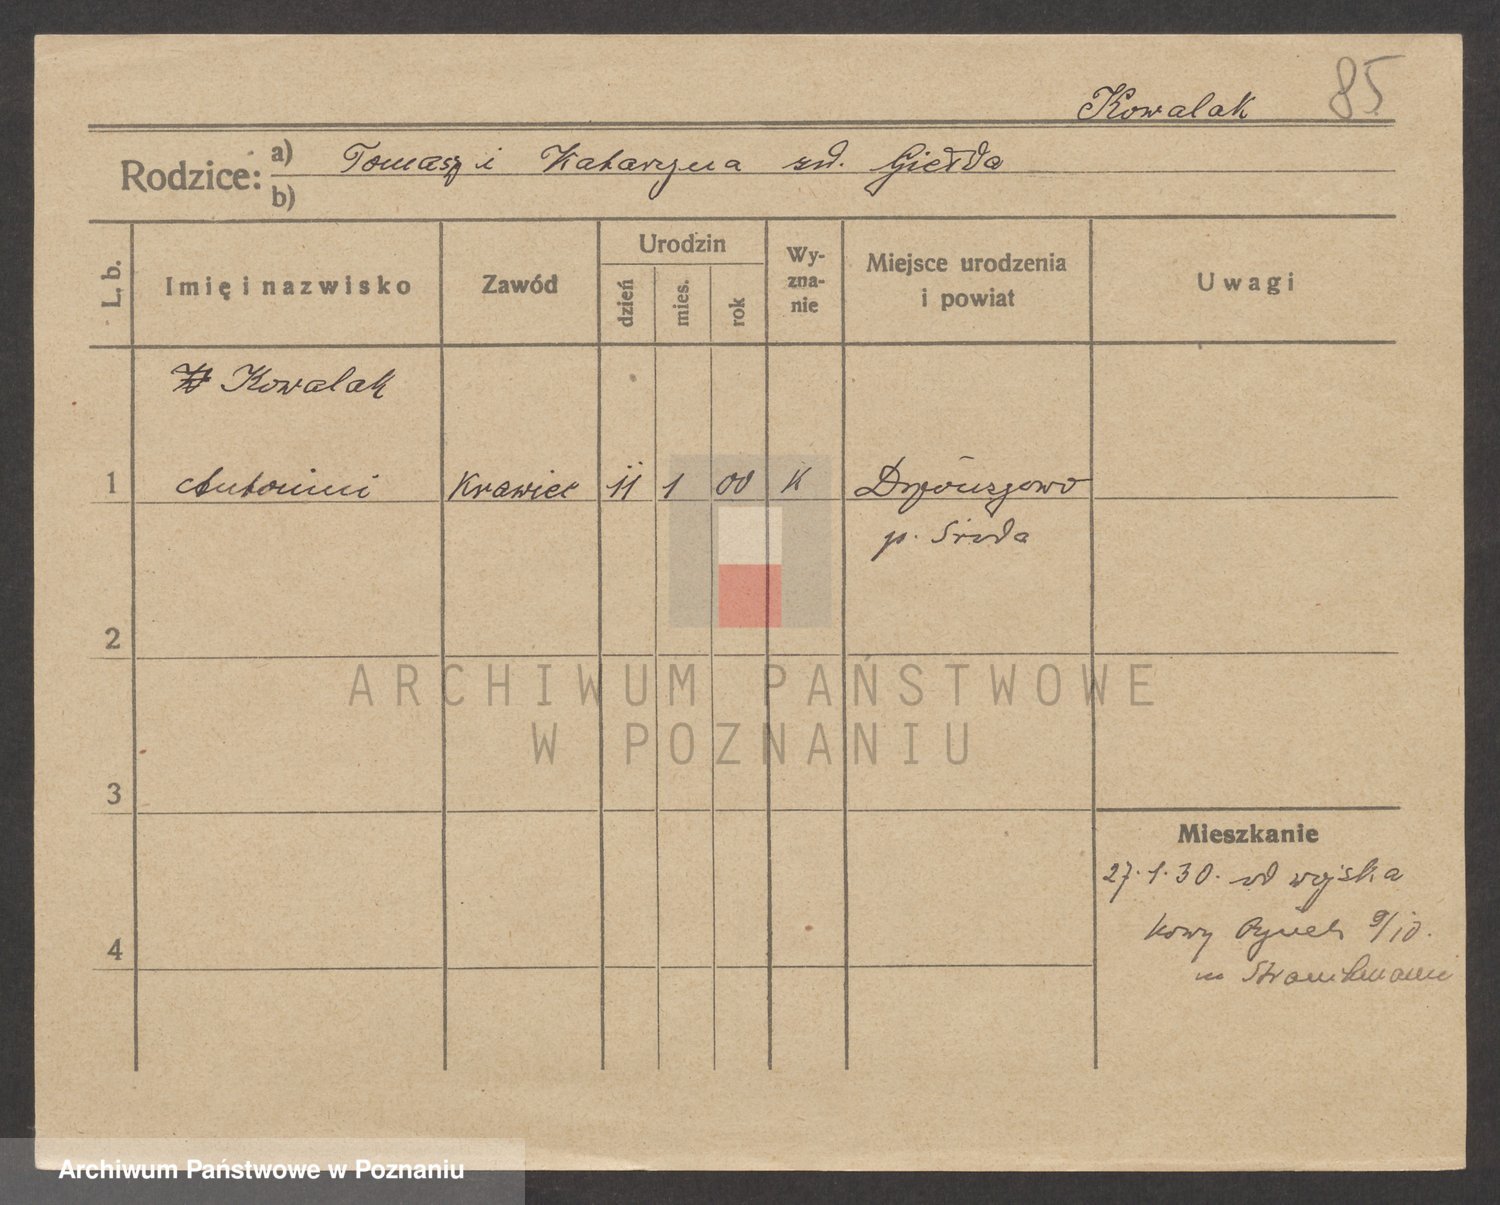 Kowalak 85
Rodzice: a) Tomasz i Katarzyna zd. Giełda
b)
L. b.
Imię i nazwisko
Zawód
Urodzin
dzień
mies.
rok
Wy-
zna-
nie
Miejsce urodzenia
i powiat
Uwagi
Kowalak
1 Antonini Krawiec 11 1 00 K
p. Środa
2
ARCHIWUM PAŃSTWOWE
W POZNANIU
3
Mieszkanie
27.1.30. od wojska
Nowy Rynek 9/10.
4
Archiwum Państwowe w Poznaniu